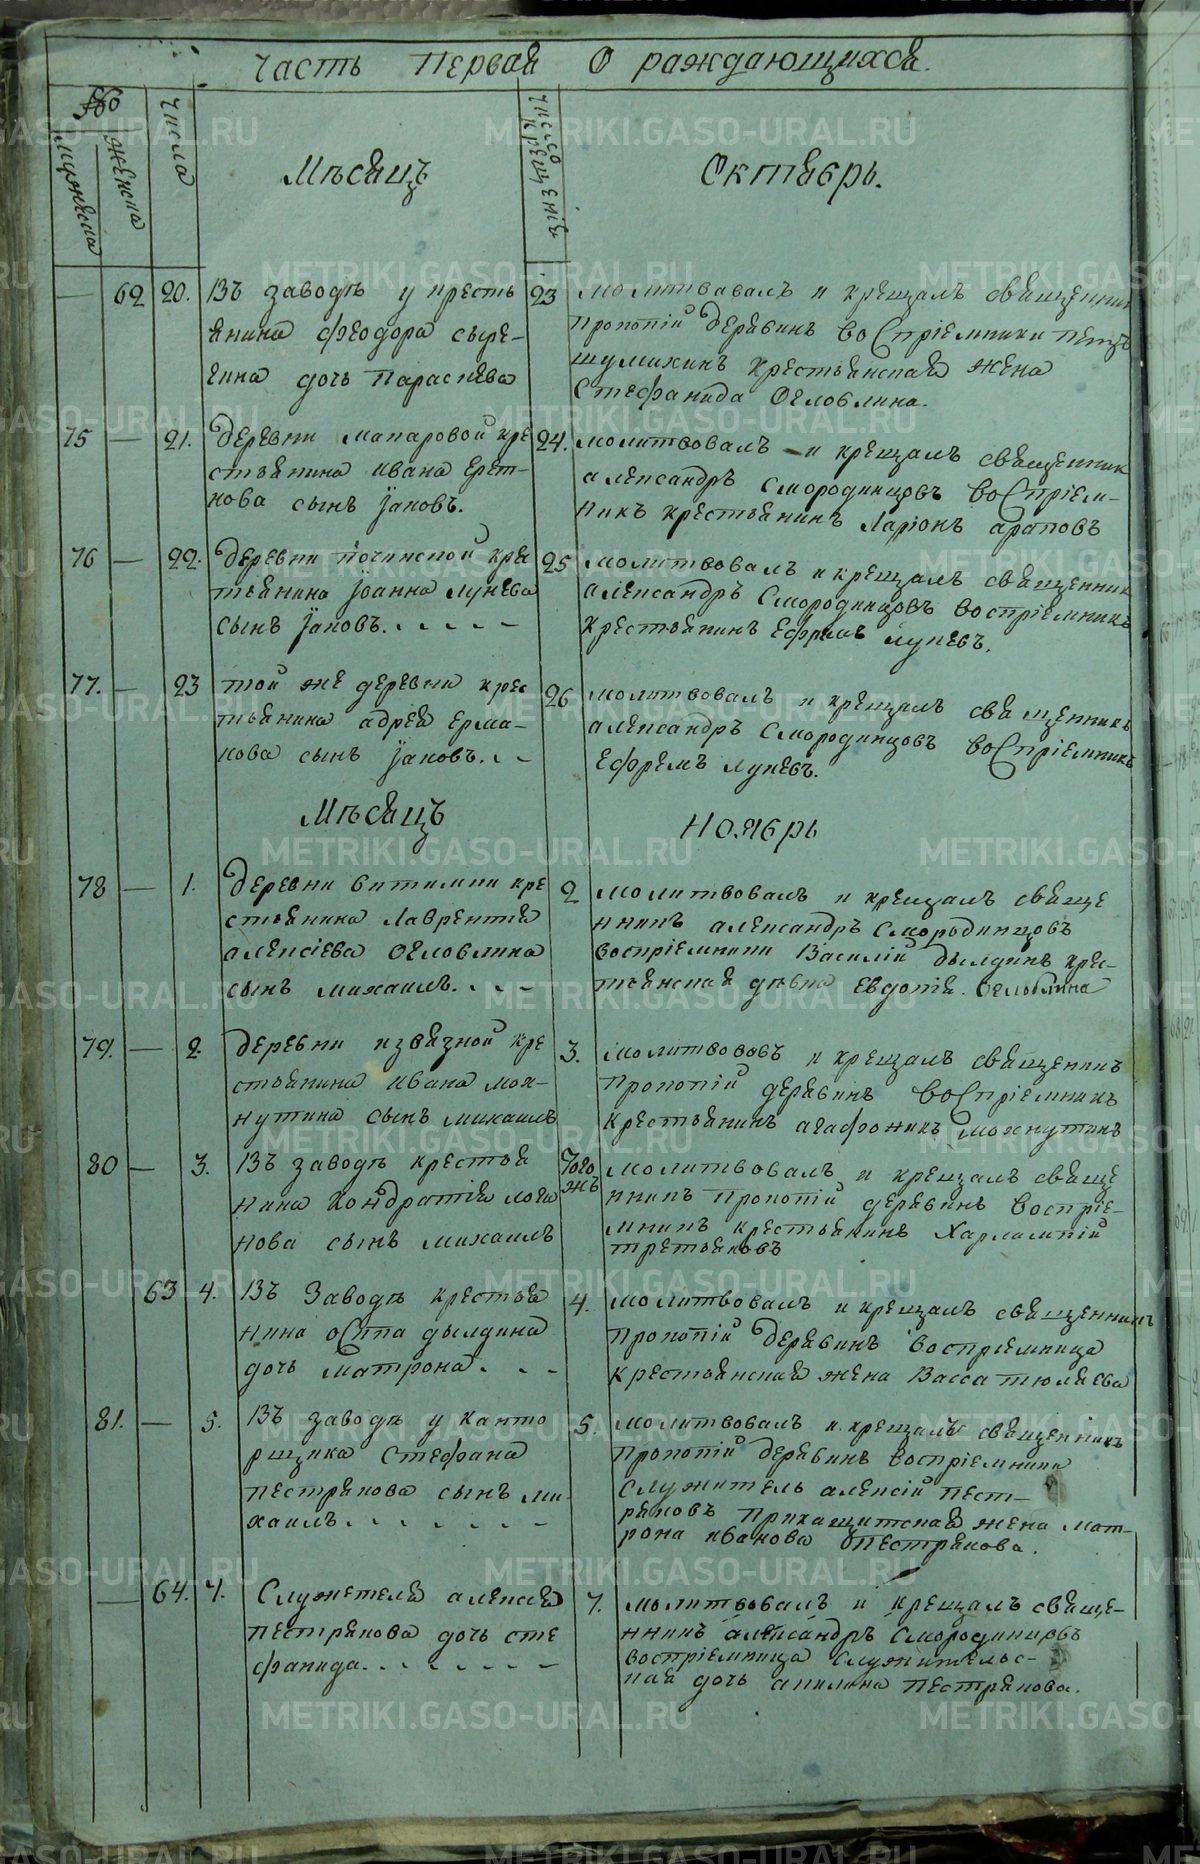 Часть Первая О раждающихся.
№
мужеска
женска
числа
Мѣсяцъ
число крещенія
Октябрь.
— 62 20. Въ заводѣ у кресть
янина Феодора Сыре-
гина дочь Параскева
23 молитвавалъ и крещалъ священник
Прокопій Дерябинъ воспріемники Петръ
Шумихинъ крестьянская жена
Стефанида Оглоблина.
75 — 21. Деревни Макаровой кре
стьянина Ивана Ерет-
нова сынъ Іаковъ.
24. молитвовалъ и крещалъ священник
Александръ Смородинцовъ воспріем-
никъ крестьянинъ Ларіонъ Араповъ
76 — 22. Деревни Починской крес
тьянина Іоанна Лунева
сынъ Іаковъ.
25 молитвовалъ и крещалъ священник
Александръ Смородинцовъ воспріемникъ
крестьянинъ Ефремъ Луневъ.
77. — 23 той же деревни крес
тьянина Адрея Ерма-
кова сынъ Іаковъ.
26 молитвовалъ и крещалъ священникъ
Александръ Смородинцовъ воспріемникъ
Ефремъ Луневъ.
Мѣсяцъ
Ноябрь
78 — 1. Деревни Битимки кре
стьянина Лаврентія
Алексіева Оглоблина
сынъ Михаилъ.
2 молитвовалъ и крещалъ свяще
нникъ Александръ Смородинцовъ
воспріемники Василій Дылдинъ крес-
тьянская дѣвка Евдокія Оглоблина
79. — 2. Деревни Извязной кре
стьянина Ивана Мох-
нутина сынъ Михаилъ
3. молитвовавъ и крещалъ священникъ
Прокопій Дерябинъ воспріемникъ
крестьянинъ Агафоникъ Мохнутинъ
80 — 3. Въ заводѣ крестья
нина Кондратія Логи
нова сынъ Михаилъ
Того жъ молитвовалъ и крещалъ свяще
нникъ Прокопій Дерябинъ воспріе-
мникъ крестьянинъ Харлампій
Третьяковъ
63 4. Въ Заводѣ крестья
нина Осипа Дылдина
дочь Матрона.
4. молитвовалъ и крещалъ священникъ
Прокопій Дерябинъ воспріемница
крестьянская жена Васса Тюляева
81. — 5. Въ заводѣ у канто
рщика Стефана
Пестрякова сынъ Ми-
хаилъ.
5. молитвовалъ и крещалъ священникъ
Прокопій Дерябинъ воспріемники
служитель Алексій Пест-
ряковъ прикащитская жена Мат-
рона Иванова Пестрякова.
— 64. 7. Служителя Алексія
Пестрякова дочь Сте
фанида.
7. молитвовалъ и крещалъ свяще-
нникъ Александръ Смородинцовъ
воспріемница служительс-
кая дочь Акилина Пестрякова.